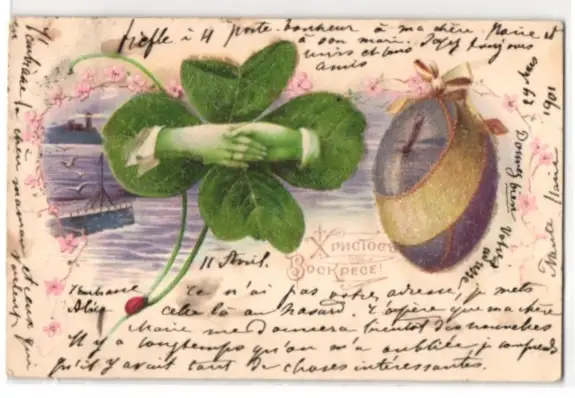 trèfle à 4 porte-bonheur à ma chère Marie et
à son mari. Soyez toujours
unis et bons
amis
29 Mars
1901
Donnez bien
Христосъ
Воскресе!
11 Avril.
J'embrasse
Alice
Je n'ai pas votre adresse, je mets
celle là au hasard. J'espère que ma chère
Marie me donnera bientôt des nouvelles
Il y a longtemps qu'on m'a oubliée, je comprends
qu'il y avait tant de choses intéressantes.
J'embrasse la chère maman et ceux qui